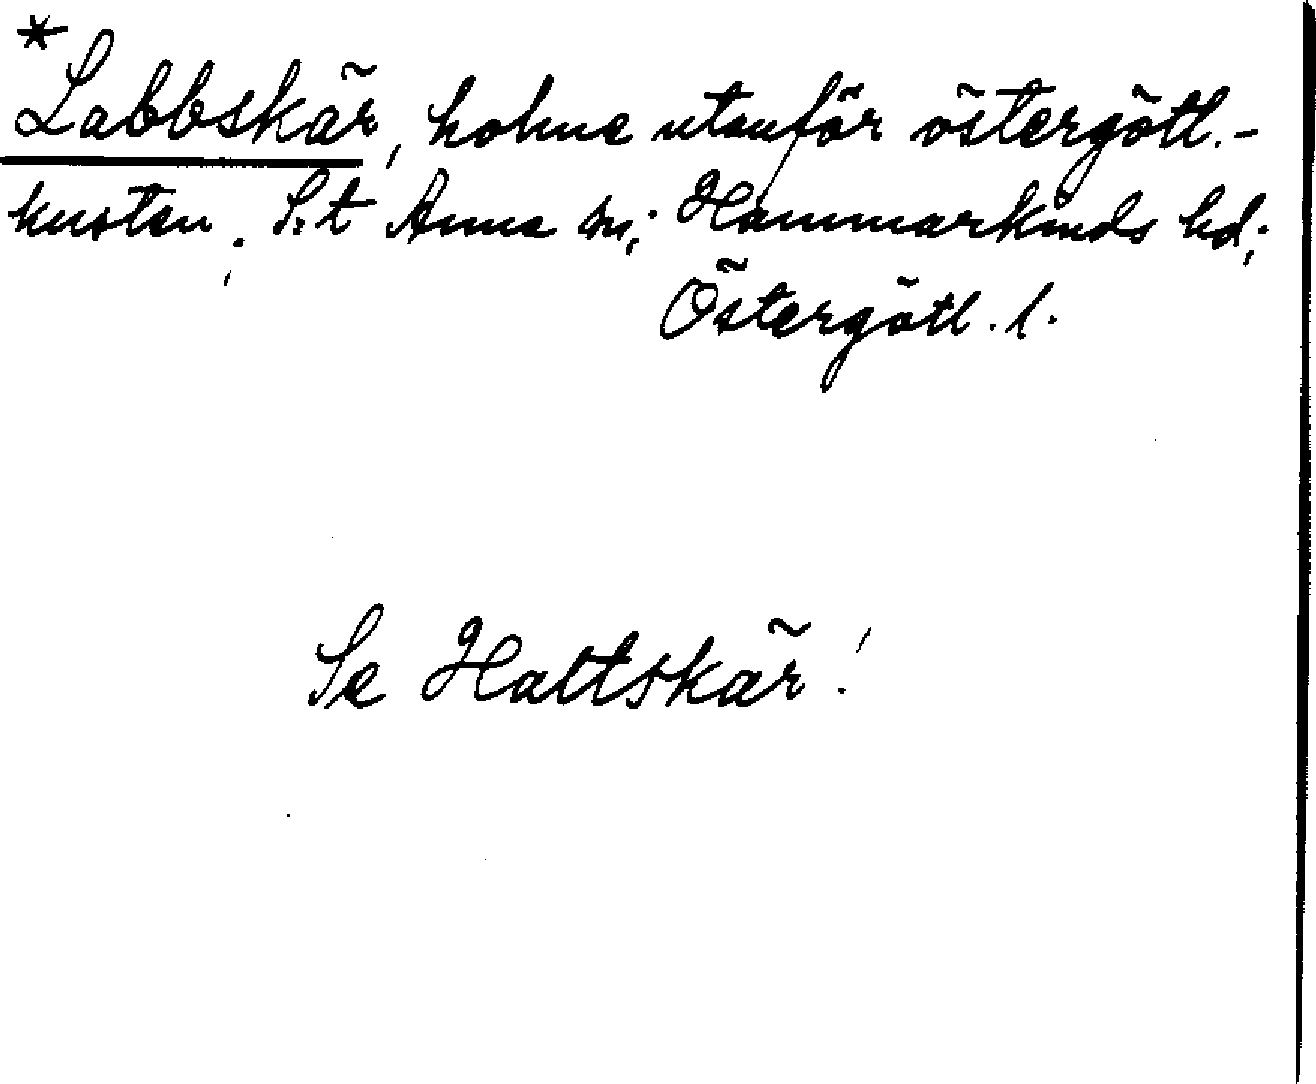 *
Labbskär, holme utanför östergötl.-
kusten. S:t Anna sn; Hammarkinds hd;
Östergötl. l.
Se Hattskär!